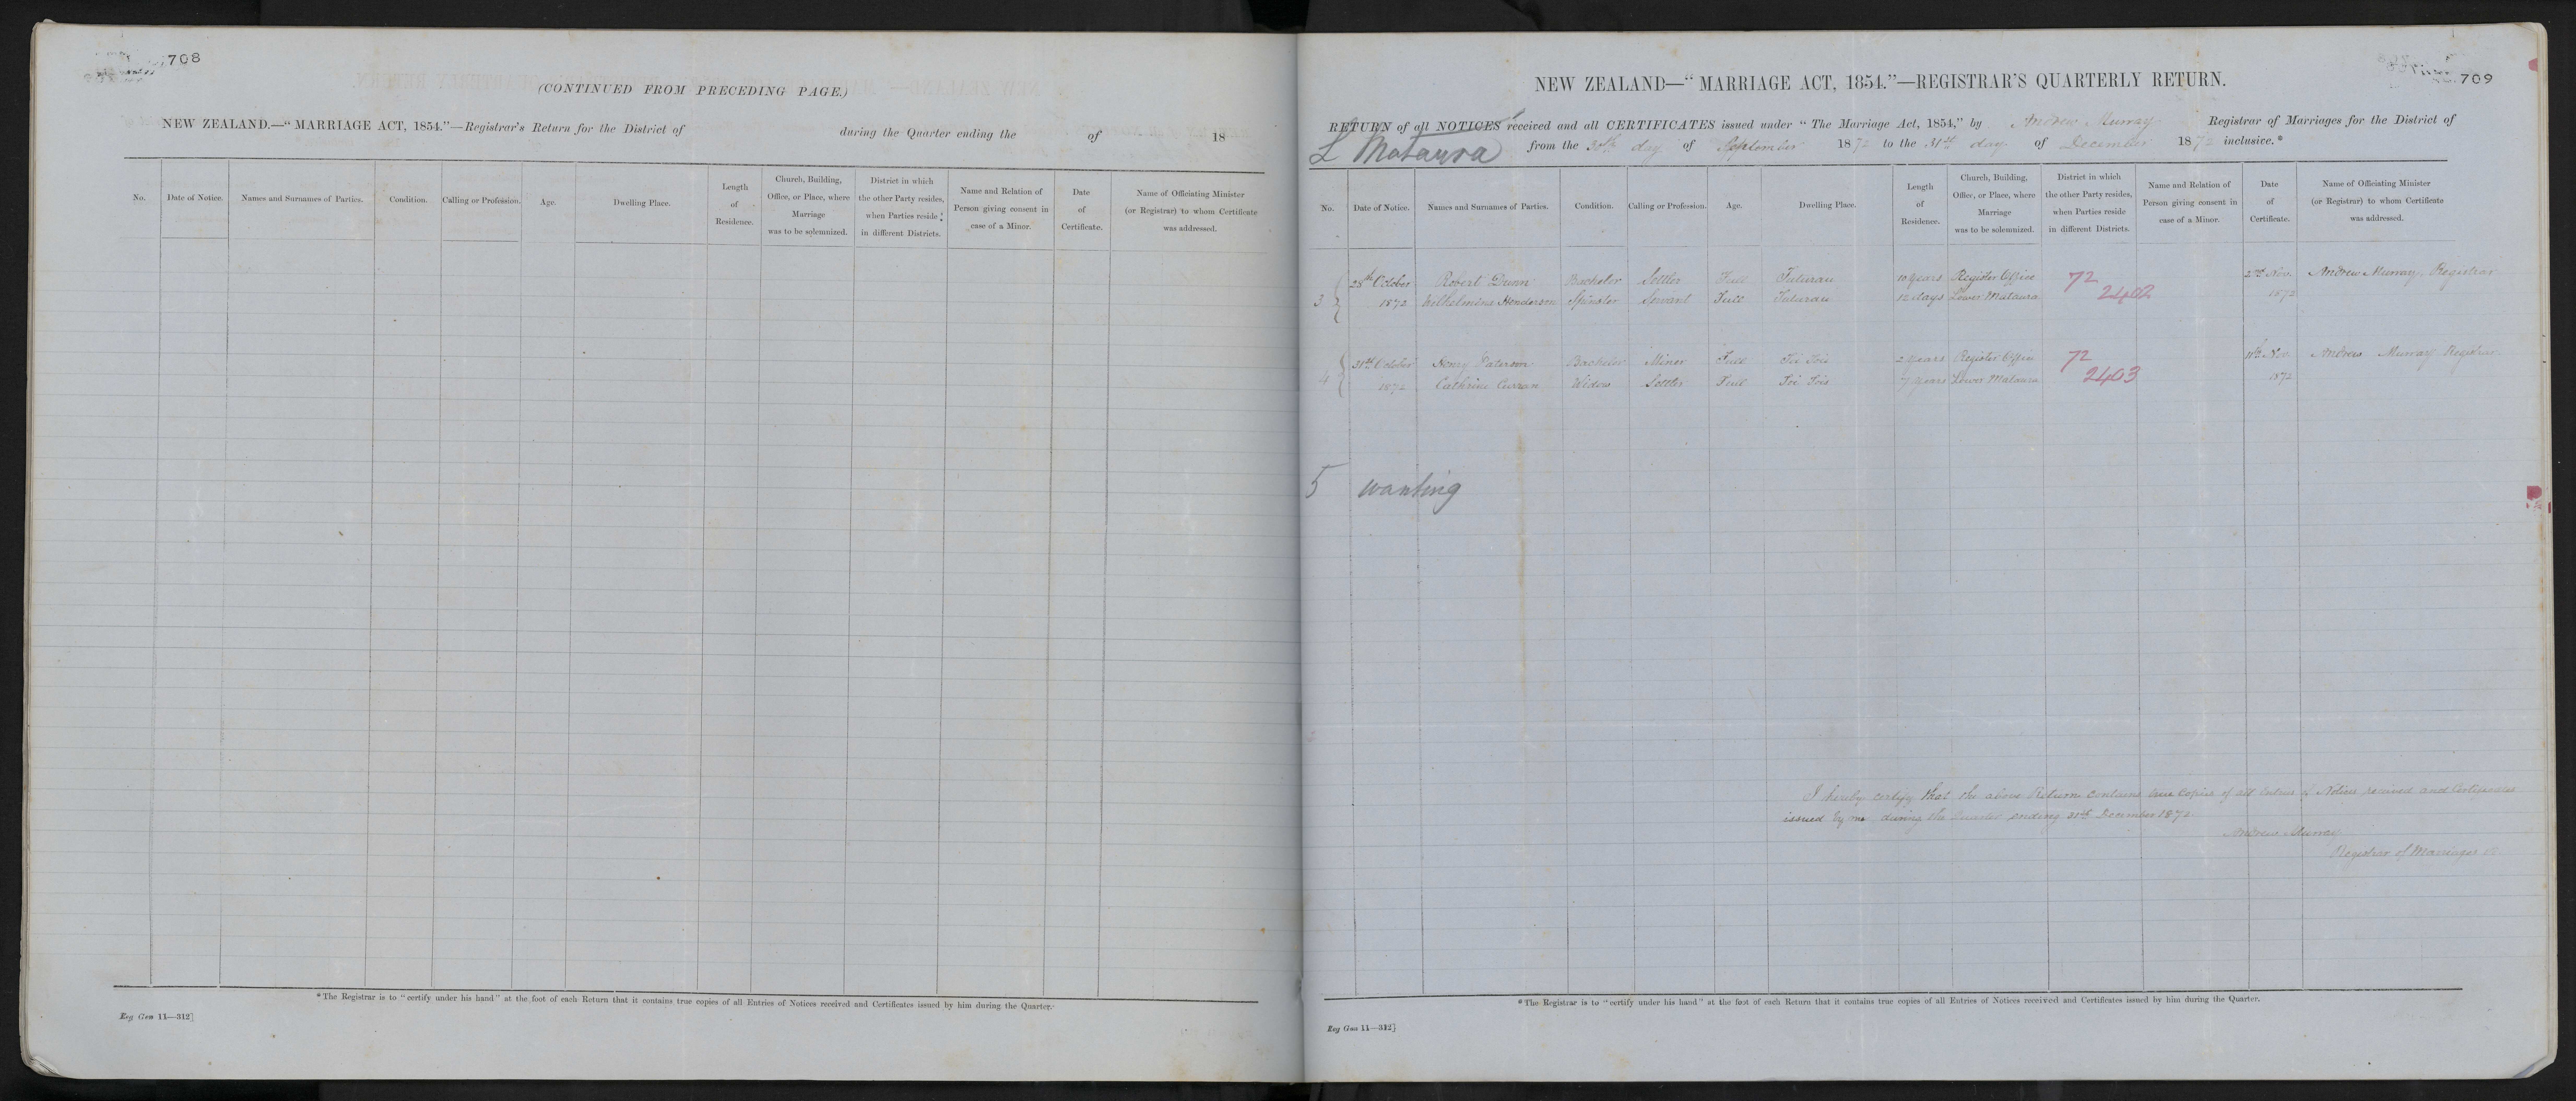 708
(CONTINUED FROM PRECEDING PAGE.)
NEW ZEALAND.—“MARRIAGE ACT, 1854.”—Registrar's Return for the District of during the Quarter ending the of 18
No. Date of Notice. Names and Surnames of Parties. Condition. Calling or Profession. Age. Dwelling Place. Length of Residence. Church, Building, Office, or Place, where Marriage was to be solemnized. District in which the other Party resides, when Parties reside in different Districts. Name and Relation of Person giving consent in case of a Minor. Date of Certificate. Name of Officiating Minister (or Registrar) to whom Certificate was addressed.
*The Registrar is to “certify under his hand” at the foot of each Return that it contains true copies of all Entries of Notices received and Certificates issued by him during the Quarter.
Reg Gen 11—312]
709
NEW ZEALAND—“MARRIAGE ACT, 1854.”—REGISTRAR'S QUARTERLY RETURN.
RETURN of all NOTICES received and all CERTIFICATES issued under “The Marriage Act, 1854,” by Andrew Murray Registrar of Marriages for the District of
L Mataura from the 30th day of September 1872 to the 31st day of December 1872 inclusive.*
No. Date of Notice. Names and Surnames of Parties. Condition. Calling or Profession. Age. Dwelling Place. Length of Residence. Church, Building, Office, or Place, where Marriage was to be solemnized. District in which the other Party resides, when Parties reside in different Districts. Name and Relation of Person giving consent in case of a Minor. Date of Certificate. Name of Officiating Minister (or Registrar) to whom Certificate was addressed.
28th October Robert Dunn Bachelor Settler Full Tuturau 10 years Register Office 72 2nd Nov. Andrew Murray Registrar
3 1872 Wilhelmina Henderson Spinster Servant Full Tuturau 12 days Lower Mataura 2402 1872
31st October Henry Paterson Bachelor Miner Full Toi Tois 2 years Register Office 72 Nov. Andrew Murray Registrar
4 1872 Cathrine Curran Widow Settler Full Toi Tois 7 years Lower Mataura 2403 1872
5 wanting
I hereby certify that the above Return contains true copies of all Entries of Notices received and Certificates
issued by me during the Quarter ending 31st December 1872
Andrew Murray
Registrar of Marriages
*The Registrar is to “certify under his hand” at the foot of each Return that it contains true copies of all Entries of Notices received and Certificates issued by him during the Quarter.
Reg Gen 11—312]